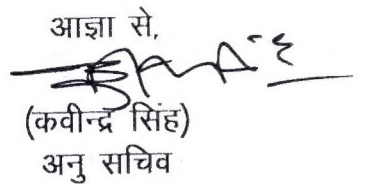 आज्ञा से,
(कवीन्द्र सिंह)
अनु सचिव